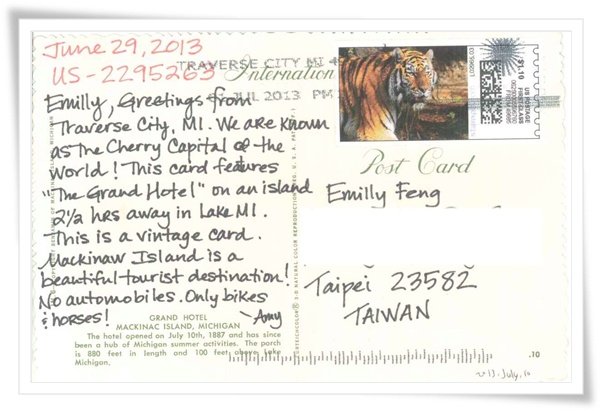 June 29, 2013
US-2295263
TRAVERSE CITY MI 4
JUL 2013 PM
International
Emilly, Greetings from
Traverse City, MI. We are known
as The Cherry Capital of the
World! This card features
"The Grand Hotel" on an island
2½ hrs away in Lake MI.
This is a vintage card.
Mackinaw Island is a
beautiful tourist destination!
No automobiles. Only bikes
& horses!
~Amy
GRAND HOTEL
MACKINAC ISLAND, MICHIGAN
The hotel opened on July 10th, 1887 and has since
been a hub of Michigan summer activities. The porch
is 880 feet in length and 100 feet above Lake
Michigan.
$1.10
US POSTAGE
FIRST-CLASS
Post Card
Emilly Feng
Taipei 23582
TAIWAN
.10